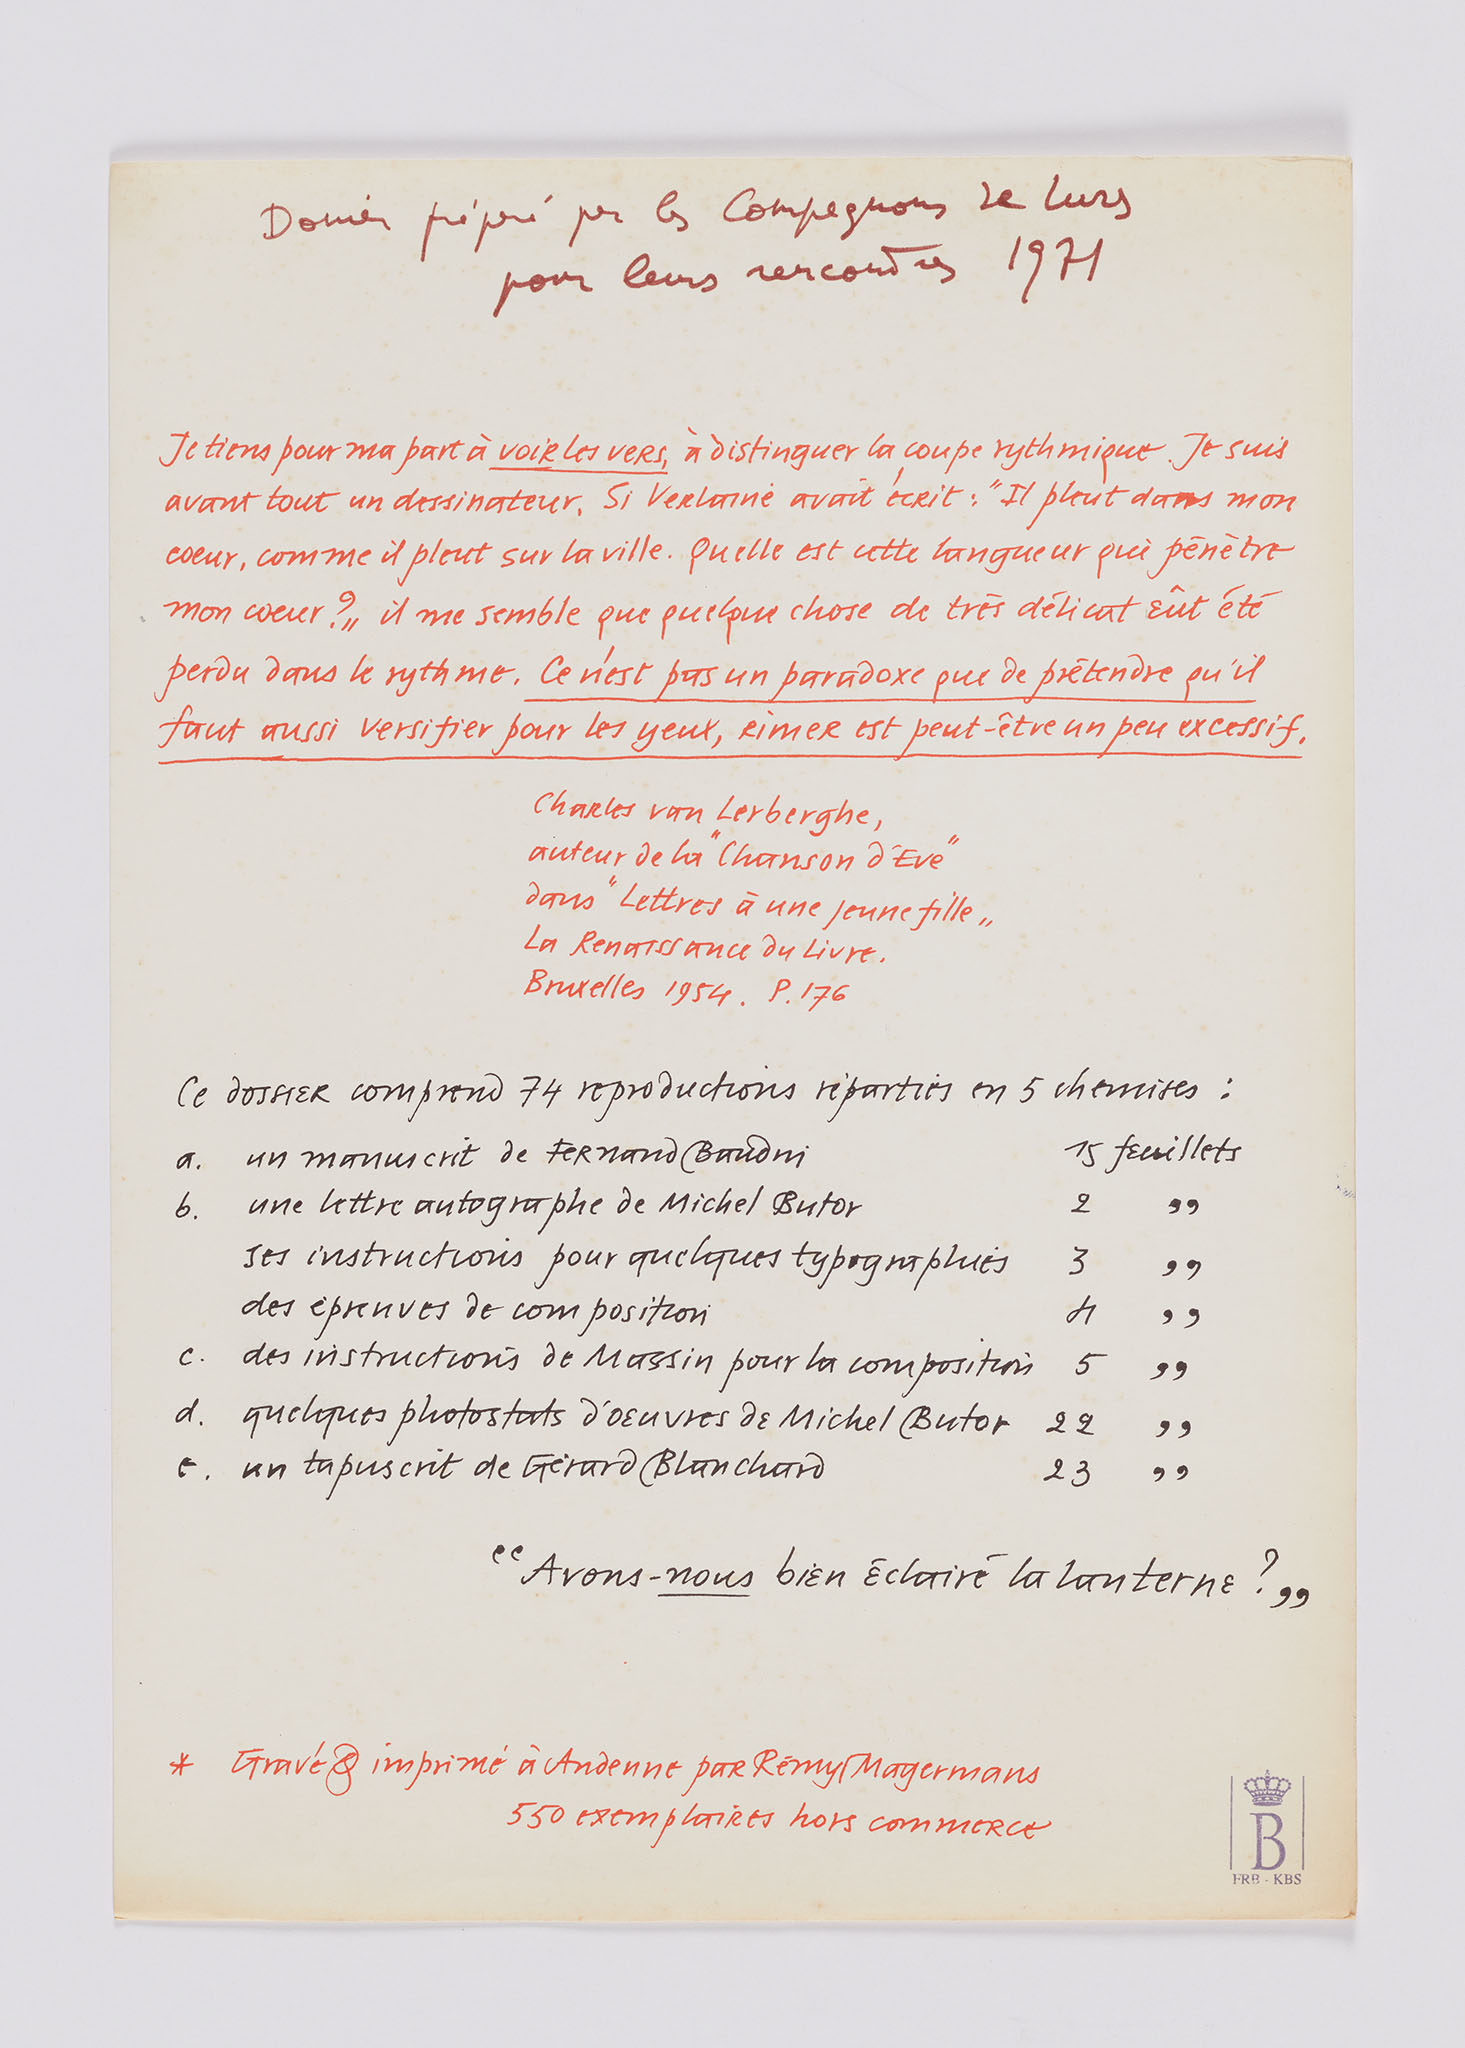 Dossier préparé par les Compagnons de Lurs
pour leurs rencontres 1971
Je tiens pour ma part à voir les vers, à distinguer la coupe rythmique. Je suis
avant tout un dessinateur. Si Verlaine avait écrit : "Il pleut dans mon
coeur, comme il pleut sur la ville. Quelle est cette langueur qui pénètre
mon coeur?„ il me semble que quelque chose de très délicat eût été
perdu dans le rythme. Ce n'est pas un paradoxe que de prétendre qu'il
faut aussi versifier pour les yeux, rimer est peut-être un peu excessif.
Charles van Lerberghe,
auteur de la "Chanson d'Eve"
dans "Lettres à une jeune fille„
La Renaissance du Livre.
Bruxelles 1954. P. 176
Ce dossier comprend 74 reproductions réparties en 5 chemises :
a. un manuscrit de Fernand Baudin 15 feuillets
b. une lettre autographe de Michel Butor 2 ,,
ses instructions pour quelques typographies 3 ,,
des épreuves de composition 4 ,,
c. des instructions de Massin pour la composition 5 ,,
d. quelques photostats d'oeuvres de Michel Butor 22 ,,
e. un tapuscrit de Gérard Blanchard 23 ,,
“Avons-nous bien éclairé la lanterne ?„
* Gravé & imprimé à Andenne par Rémy Magermans
550 exemplaires hors commerce
B
FRB - KBS